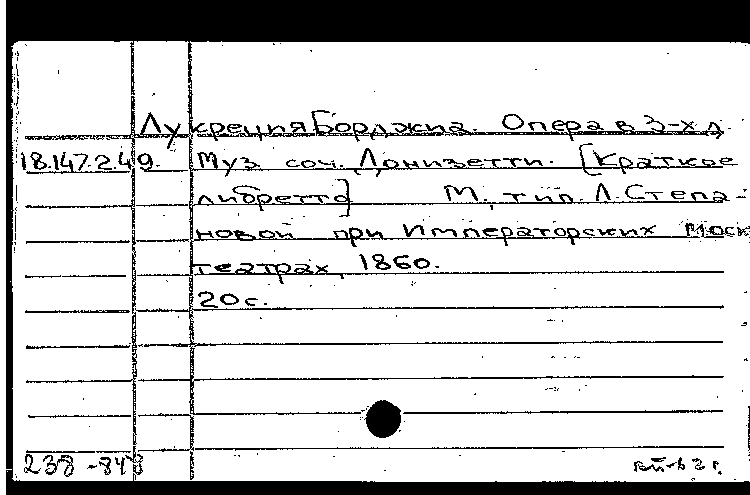 Лукреция Борджиа. Опера в 3-х д.
18.147.2.49. Муз. соч. Донизетти. [Краткое
либретто] М., тип. Л. Степа-
новой при Императорских Моск
театрах, 1860.
20 с.
238-848